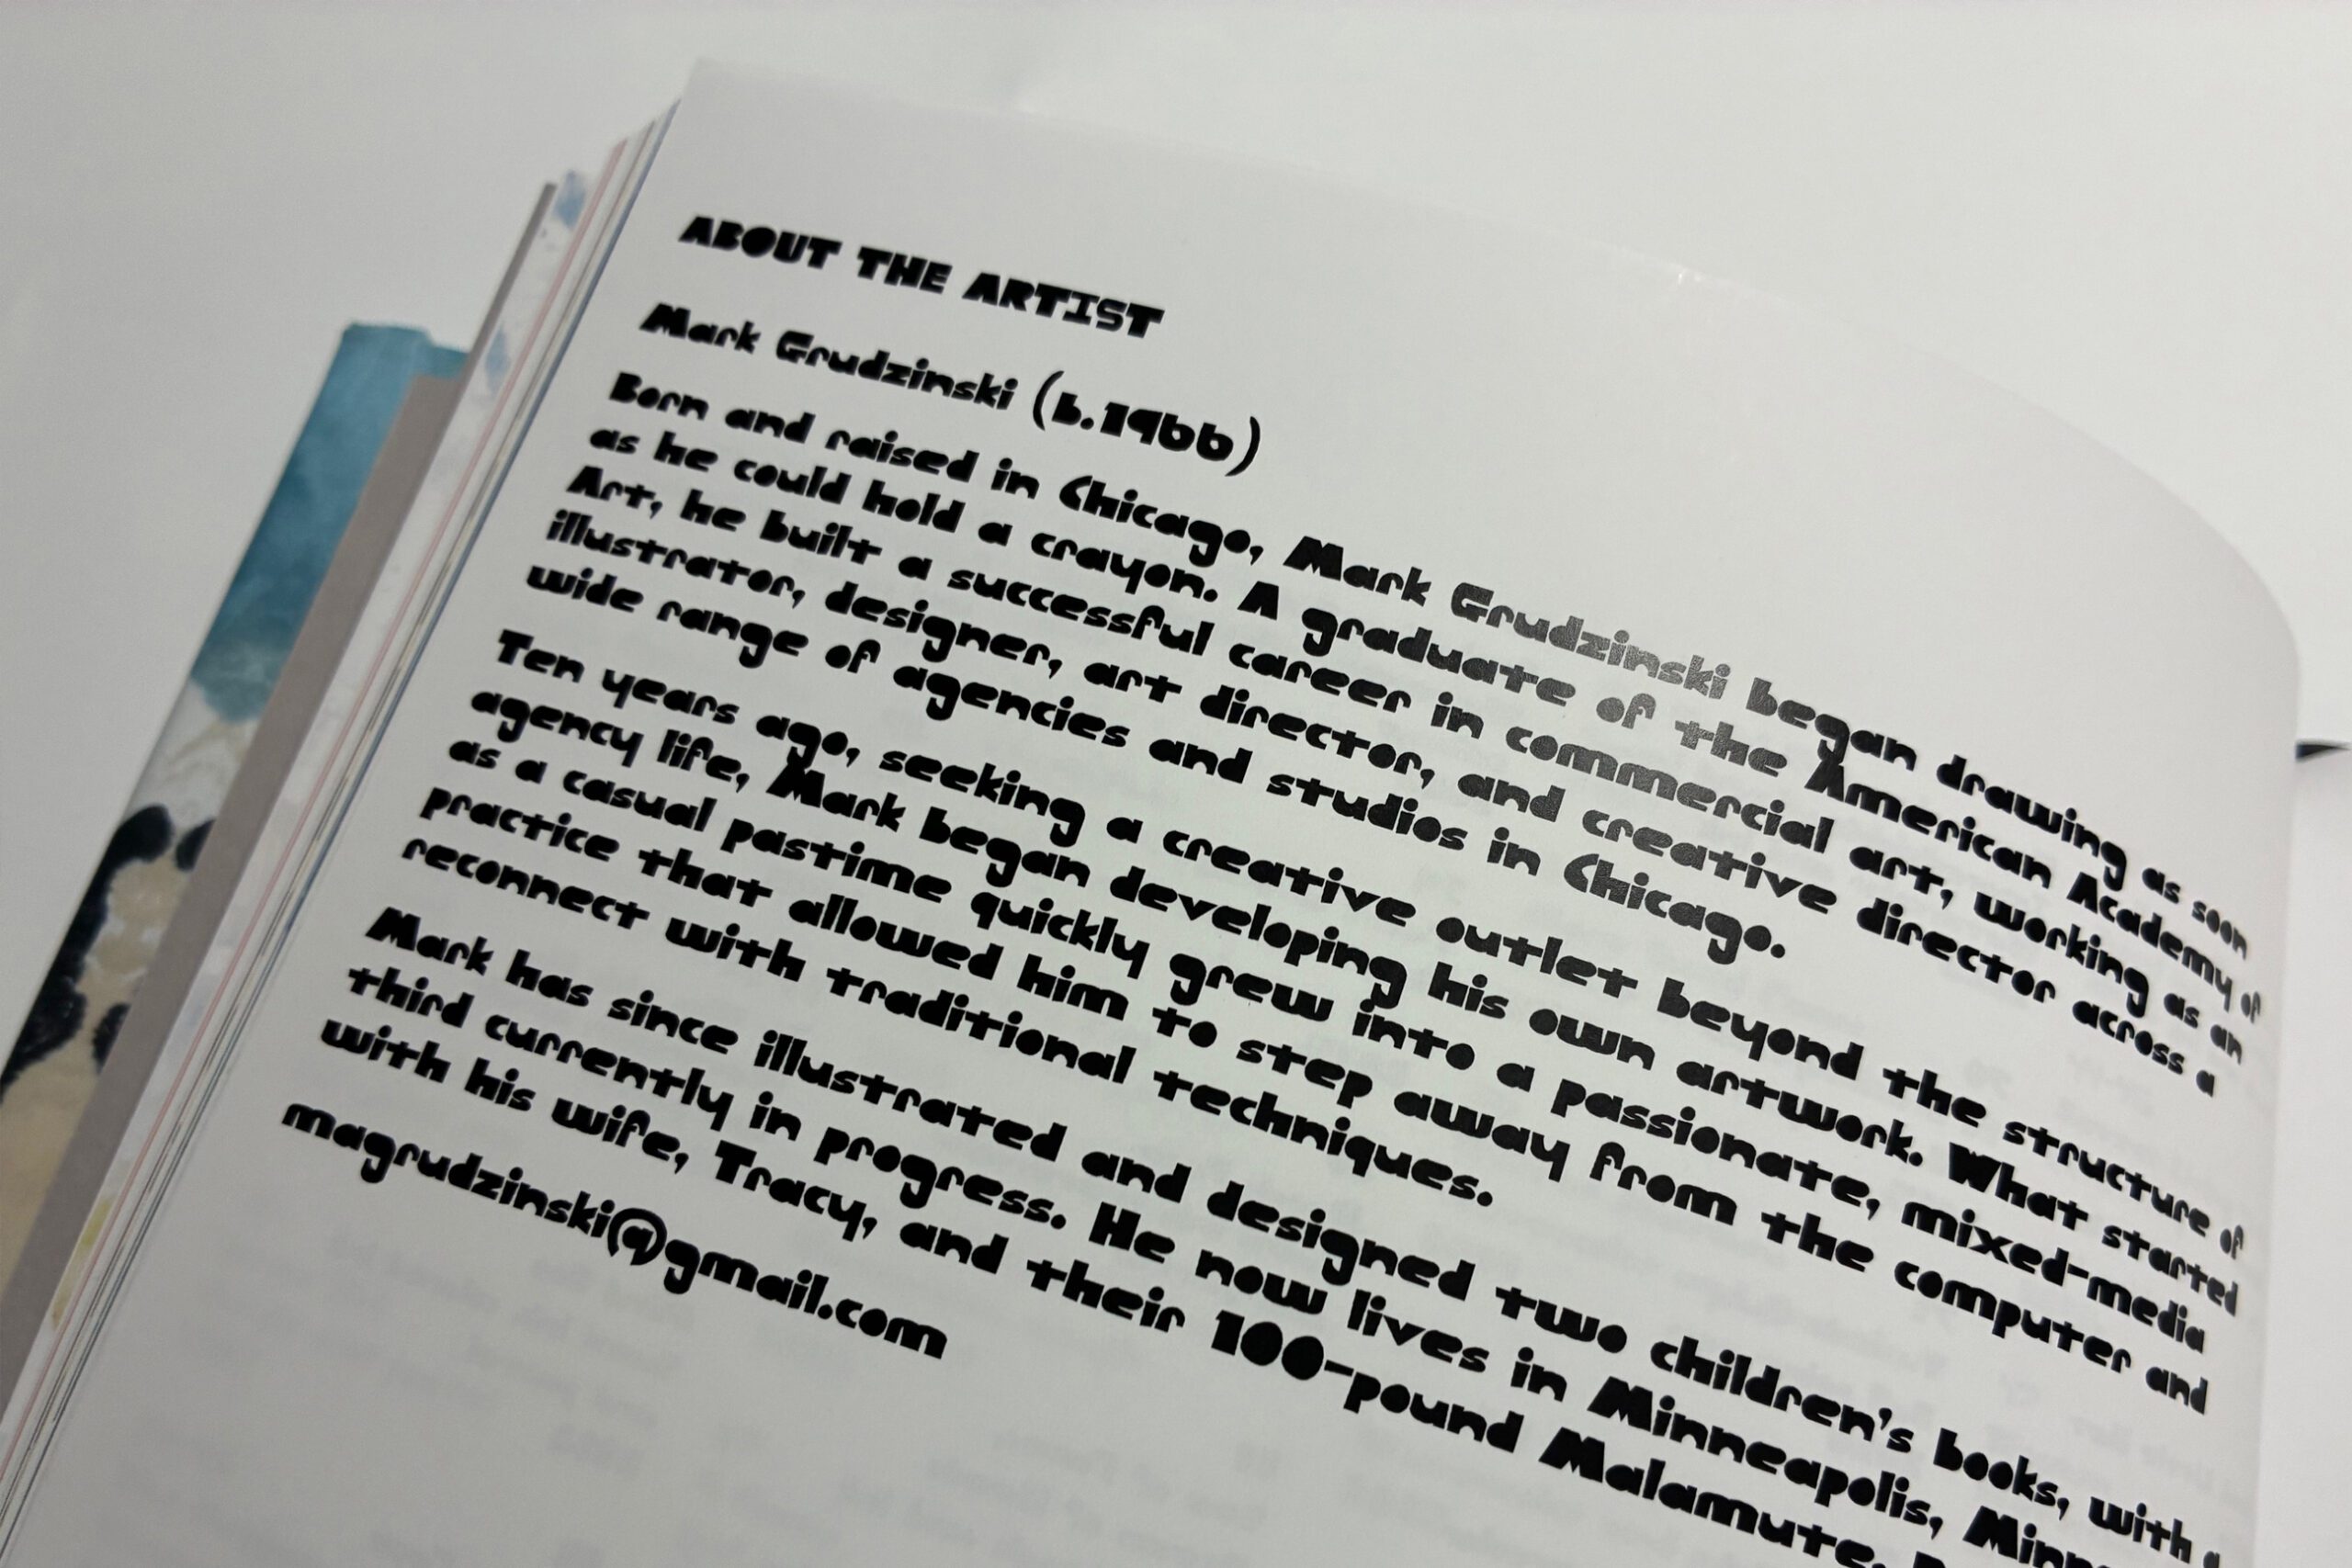 ABOUT THE ARTIST
Mark Grudzinski (b.1966)
Born and raised in Chicago, Mark Grudzinski began drawing as soon
as he could hold a crayon. A graduate of the American Academy of
Art, he built a successful career in commercial art, working as an
illustrator, designer, art director, and creative director across a
wide range of agencies and studios in Chicago.
Ten years ago, seeking a creative outlet beyond the structure of
agency life, Mark began developing his own artwork. What started
as a casual pastime quickly grew into a passionate, mixed-media
practice that allowed him to step away from the computer and
reconnect with traditional techniques.
Mark has since illustrated and designed two children's books, with a
third currently in progress. He now lives in Minneapolis,
with his wife, Tracy, and their 100-pound Malamute,
magrudzinski@gmail.com